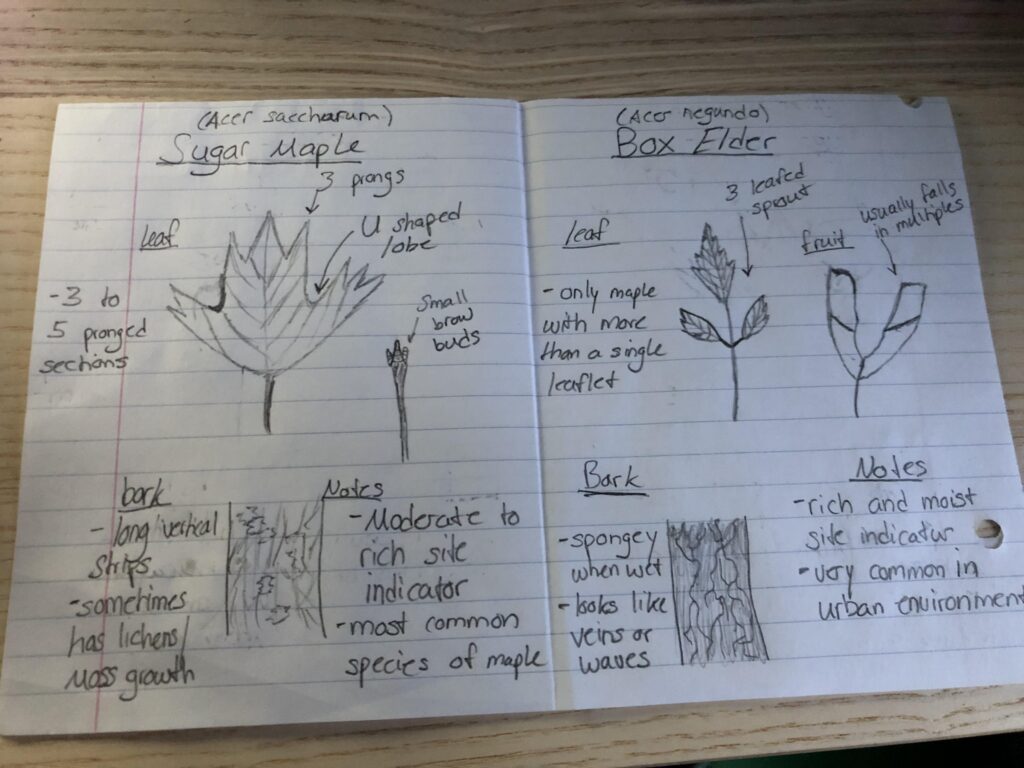 (Acer saccharum)
Sugar Maple
3 prongs
U shaped
lobe
leaf
-3 to
5 pronged
sections
small
brow
buds
bark
- long vertical
strips
-sometimes
has lichens/
moss growth
Notes
-Moderate to
rich site
indicator
-most common
species of maple
(Acer negundo)
Box Elder
3 leafed
sprout
leaf
- only maple
with more
than a single
leaflet
usually falls
in multiples
fruit
Bark
-spongey
when wet
-looks like
veins or
waves
Notes
-rich and moist
site indicator
-very common in
urban environment